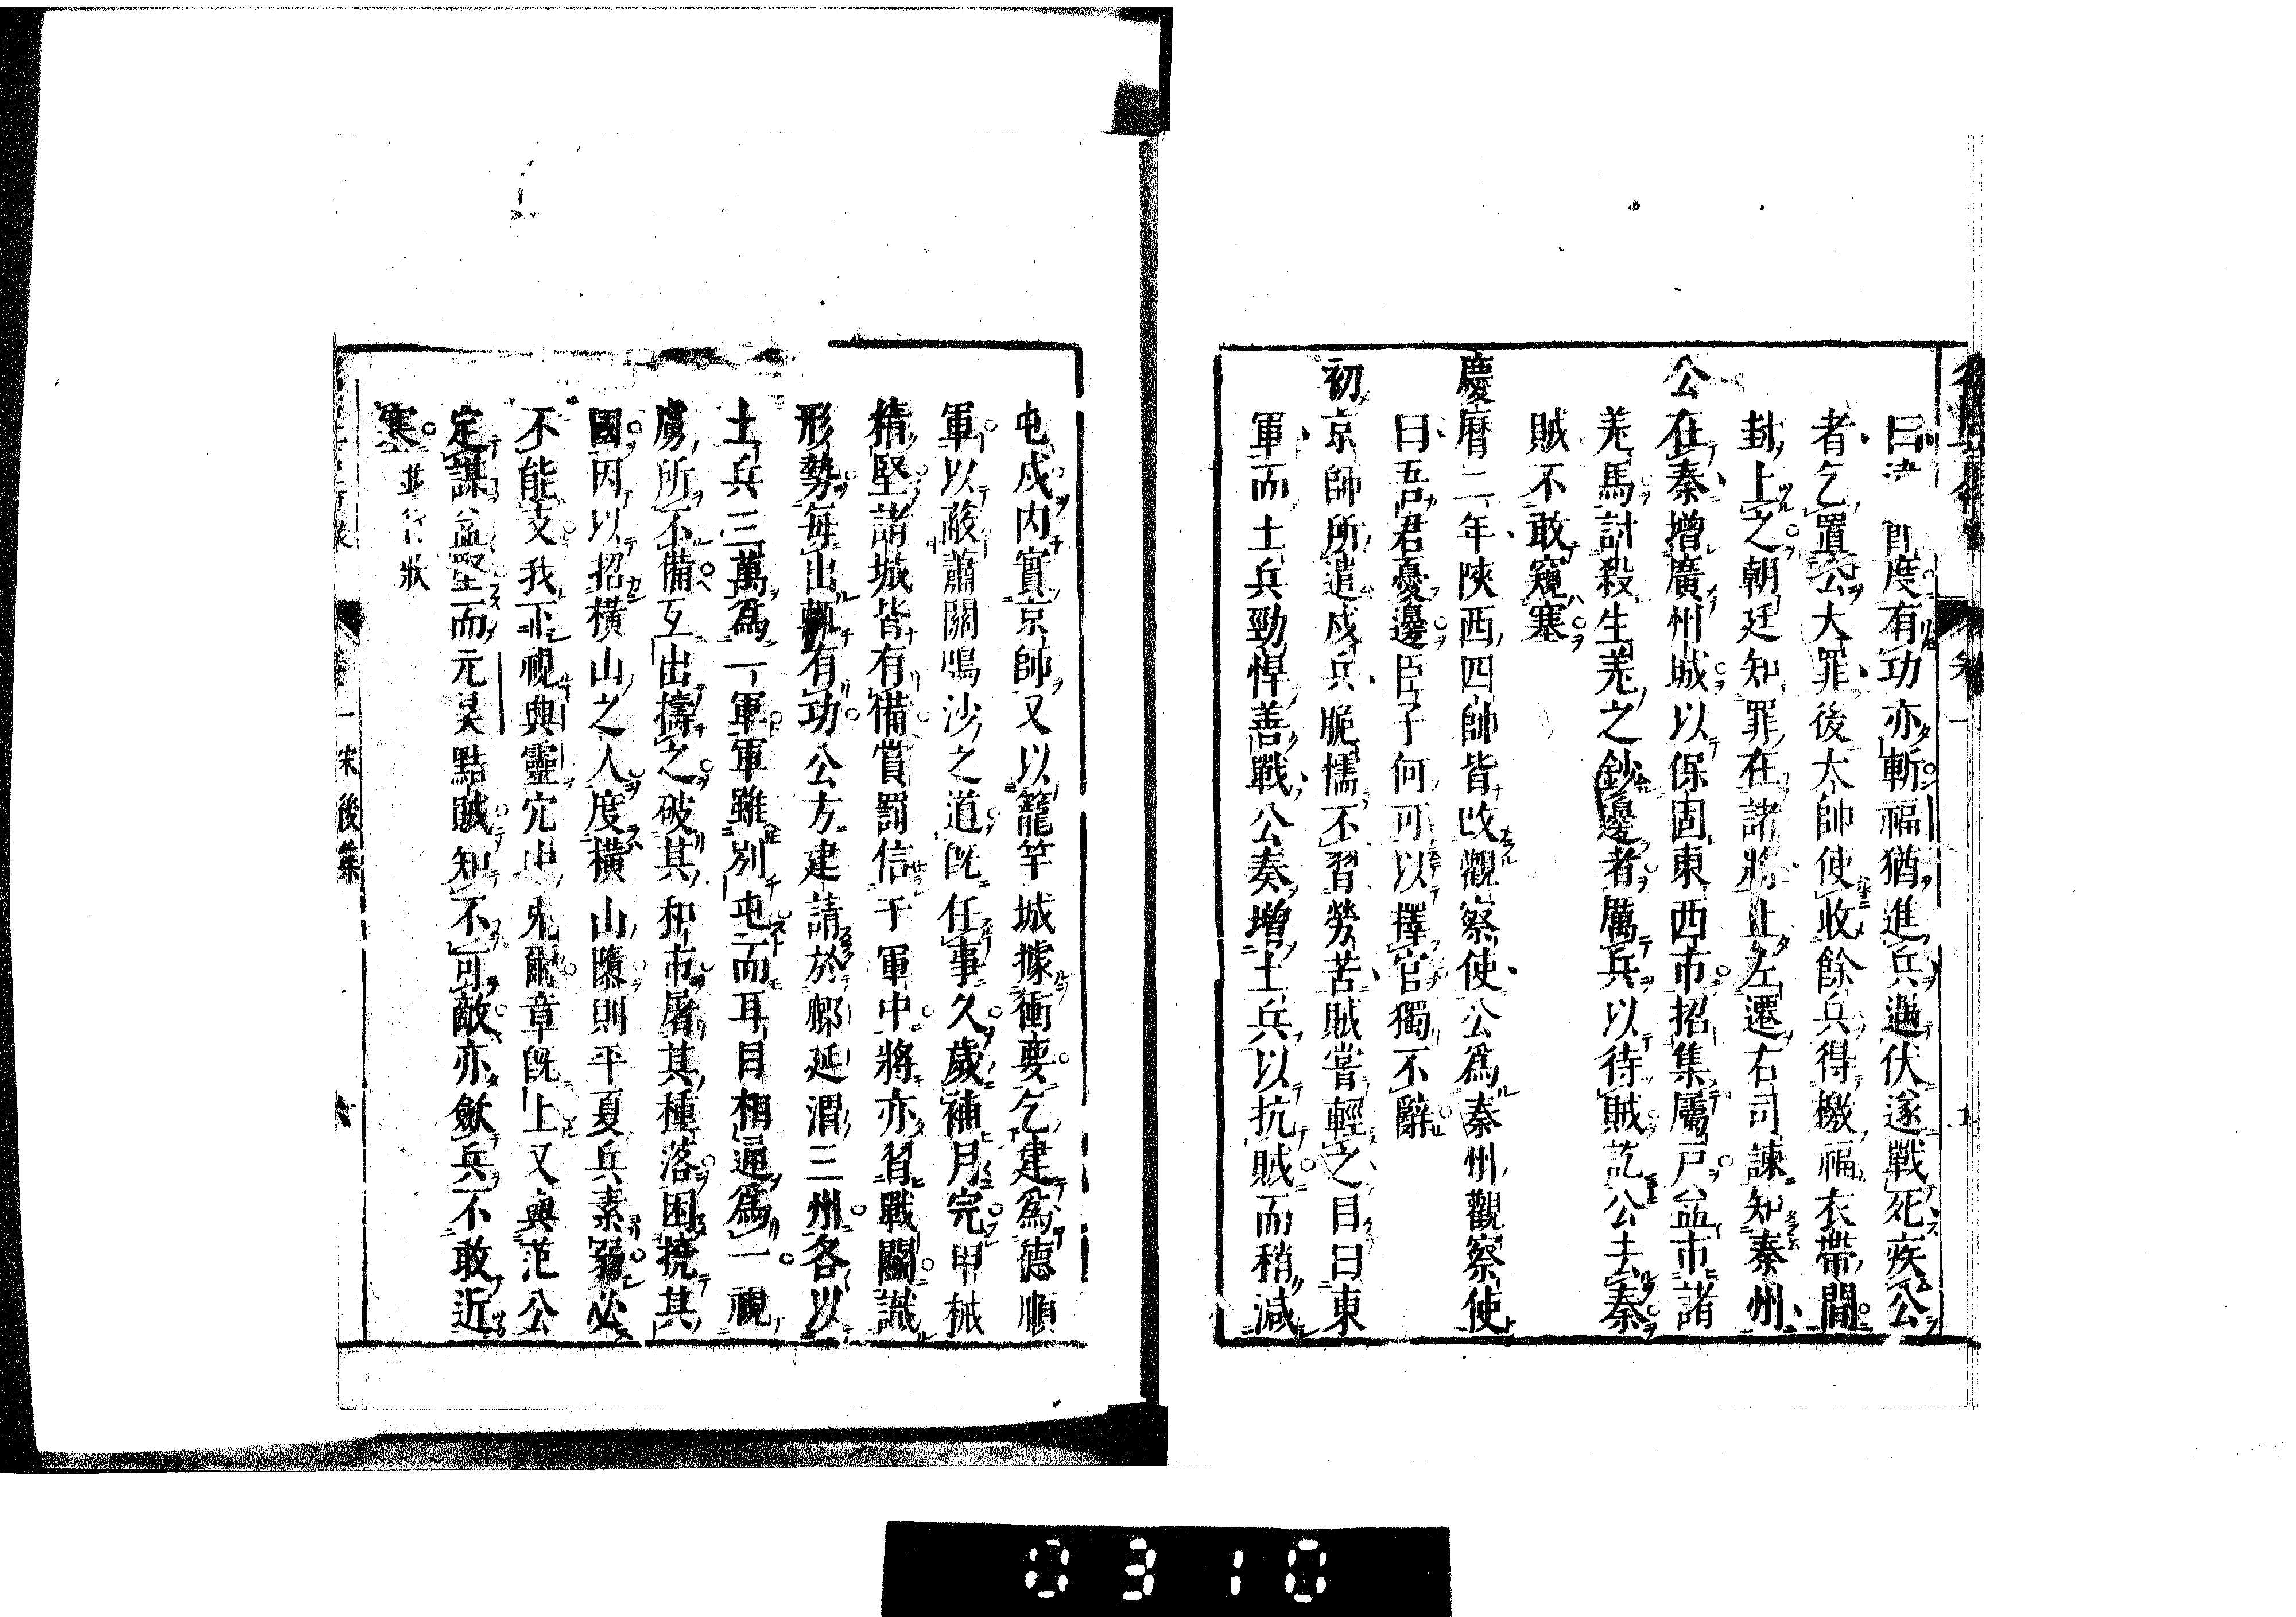 曰違節度有功亦斬福猶進兵遇伏遂戰死疾公
者乞置公大罪後大帥使收餘兵得檄福衣帶間
封上之朝廷知罪在諸將止左遷右司諫知秦州
公在秦增廣州城以保固東西市招集屬戶益市諸
羌馬討殺生羌之鈔邊者厲兵以待賊訖公去秦
賊不敢窺塞
慶曆二年陝西四帥皆改觀察使公爲秦州觀察使
曰吾君憂邊臣子何可以擇官獨不辭
初京師所遣戍兵脆懦不習勞苦賊嘗輕之目曰東
軍而土兵勁悍善戰公奏增土兵以抗賊而稍減
屯戍内實京師又以籠竿城據衝要乞建爲德順
軍以蔽蕭關鳴沙之道既任事久歲補月完甲械
精堅諸城皆有備賞罰信于軍中將亦習戰鬭識
形勢每出輒有功公方建請於鄜延渭三州各以
土兵三萬爲一軍軍雖別屯而耳目相通爲一視
虜所不備互出擣之破其和市屠其種落困撓其
國因以招橫山之人度橫山隳則平夏兵素弱必
不能支我下視興靈穴中兎爾章既上又與范公
定謀益堅而元昊黠賊知不可敵亦歛兵不敢近
塞 並行狀
一 宋後集 六